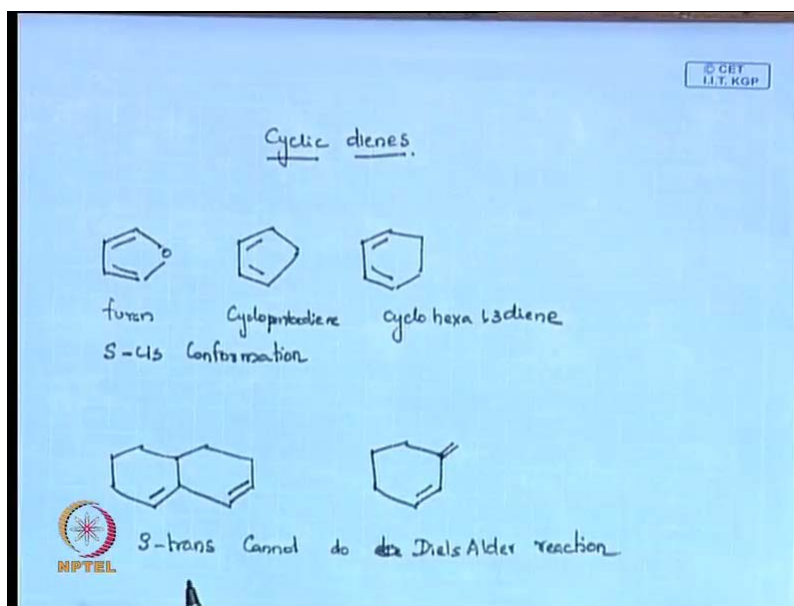 © CET
I.I.T. KGP
Cyclic dienes.
furan Cyclopentadiene cyclo hexa 1,3 diene
S-cis Conformation
S-trans Cannot do Diels Alder reaction
NPTEL